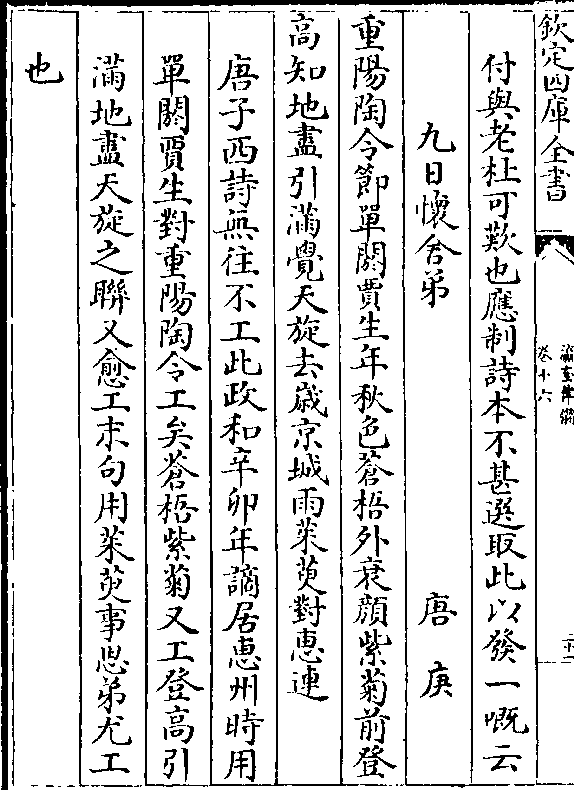 欽定四庫全書
瀛奎律髓
卷十六
付與老杜可歎也應制詩本不甚選取此以發一嘅云
九日懷舍弟 唐庚
重陽陶令節單閼賈生年秋色蒼梧外衰顔紫菊前登
高知地盡引滿覺天旋去歲京城雨茱萸對恵連
唐子西詩無往不工此政和辛卯年謫居恵州時用
單閼賈生對重陽陶令工矣蒼梧紫菊又工登高引
滿地盡天旋之聯又愈工末句用茱萸事思弟尤工
也